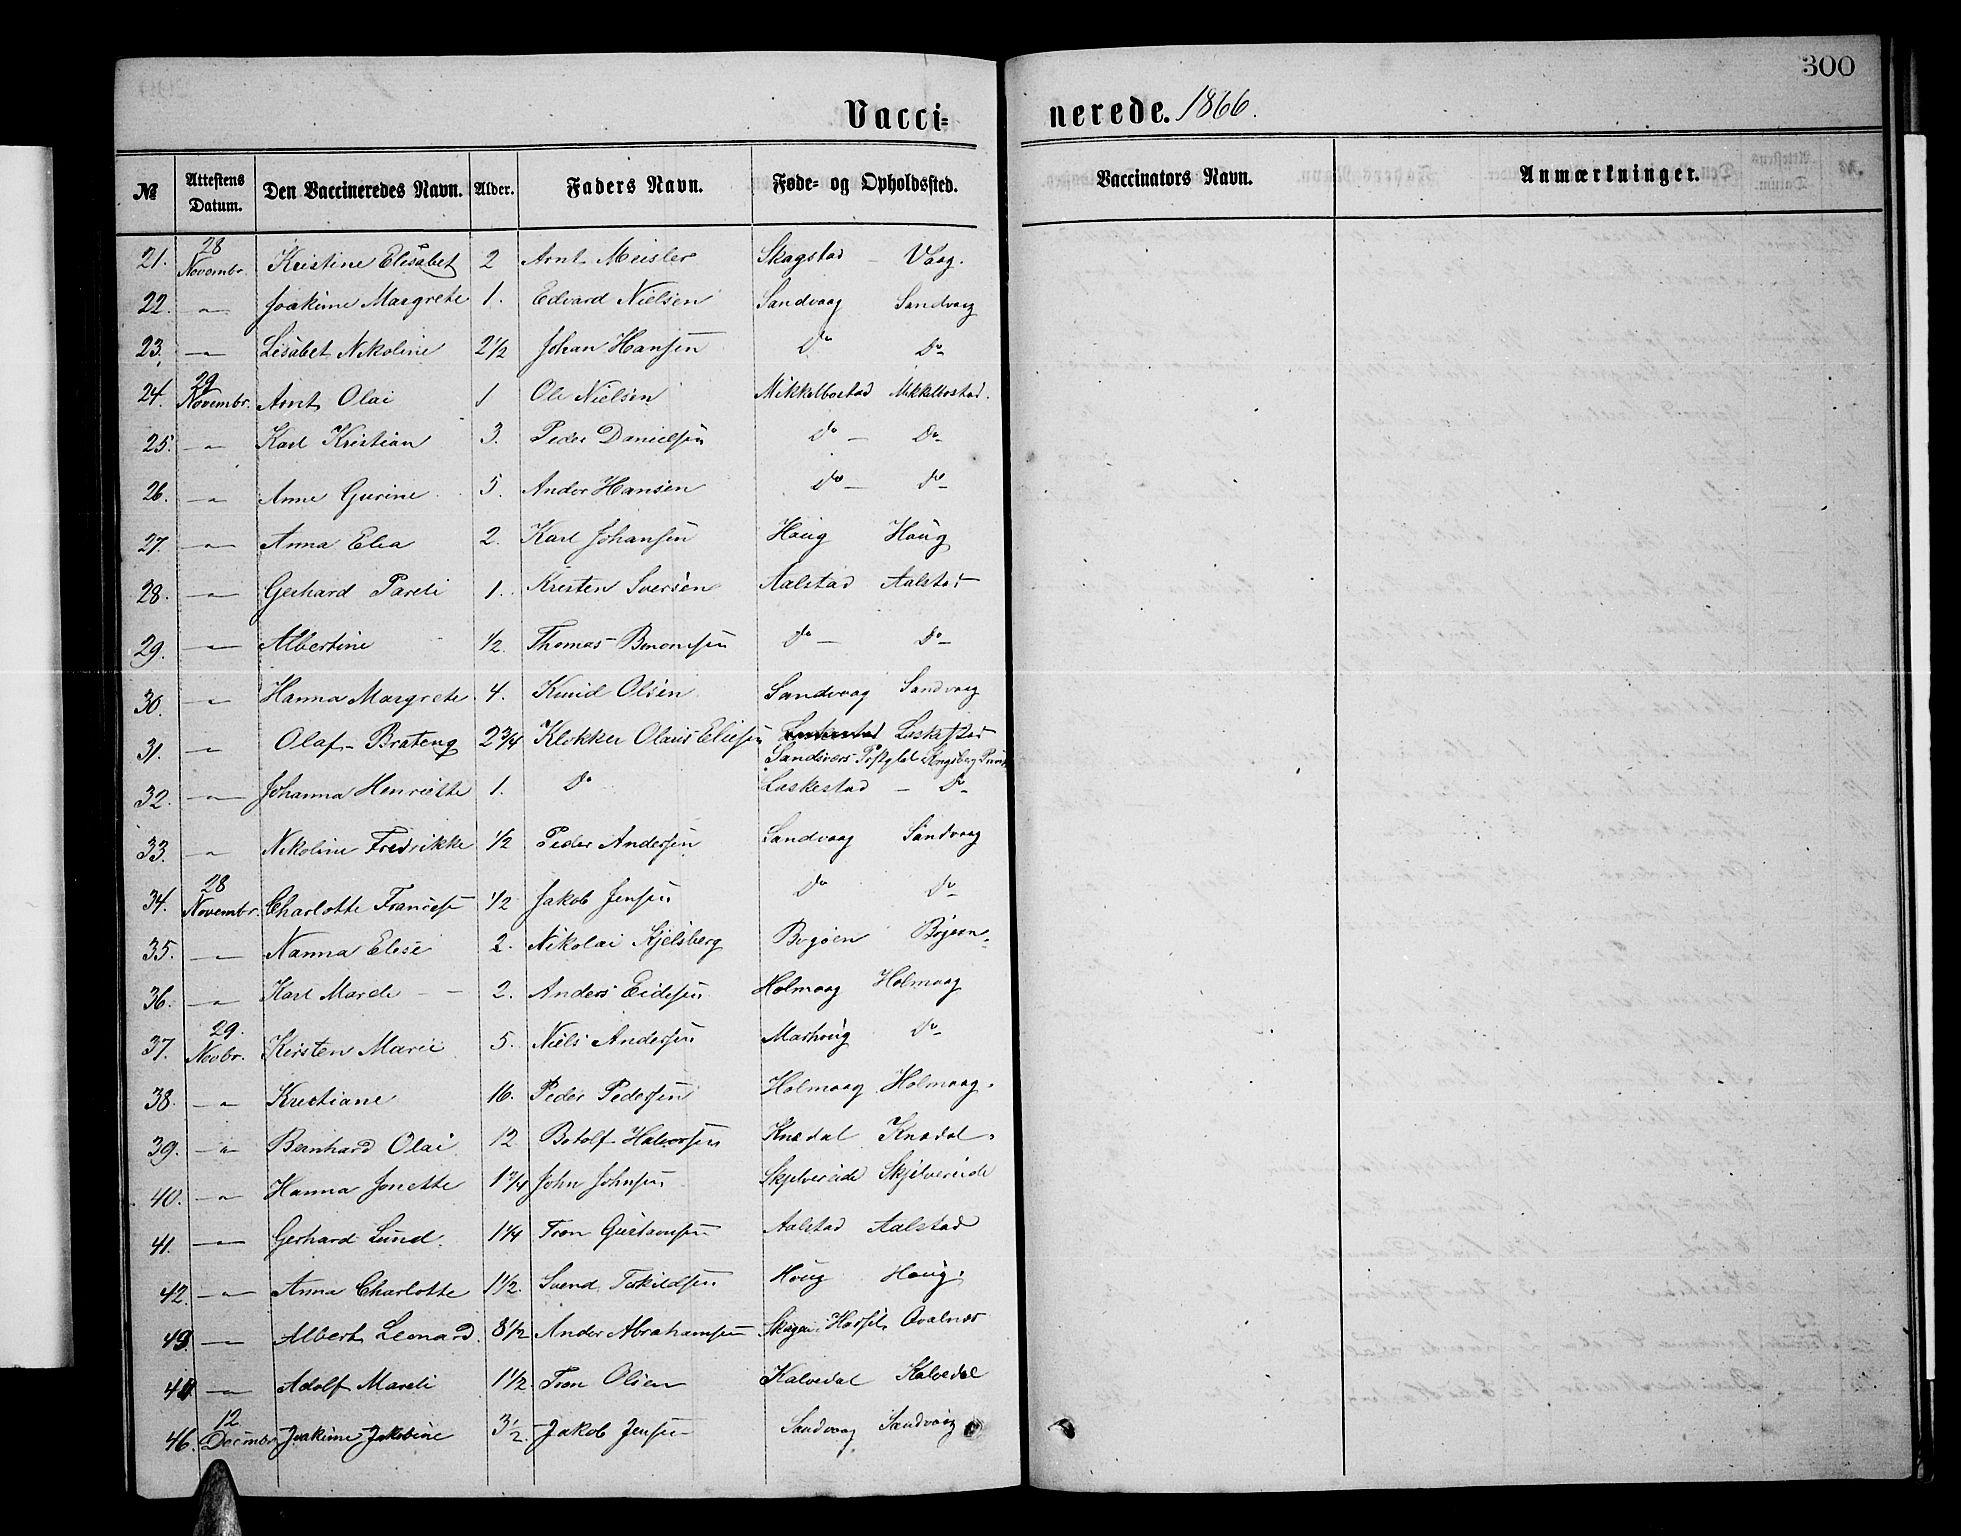 300
Vacci- nerede. 1866.
№ Attestens Datum. Den Vaccineredes Navn. Alder. Faders Navn. Føde- og Opholdssted. Vaccinators Navn. Anmærkninger.
21. 28 Novembr. Kristine Elisabet 2 Arnt Meisler Skagstad - Vaag.
22. -"- Joakime Margrete 1. Edvard Nielsen Sandvaag Sandvaag
23. -"- Lisabet Nikoline 2 1/2 Johan Hansen Do Do
24. 29 Novembr. Arnt Olai 1 Ole Nielsen Mikkelbostad Mikkelbostad.
25. -"- Karl Kristian 3. Peder Danielsen Do - Do
26. -"- Anne Gurine 5. Ander Hansen Do - Do
27. -"- Anna Elea 2. Karl Johansen Houg Houg
28. -"- Gerhard Pareli 1. Kristen Iversen Aalstad Aalstad
29. -"- Albertine 1/2. Thomas Benonisen Do - Do
30. -"- Hanna Margrete 4. Knud Olsen Sandvaag Sandvaag
31. -"- Olaf Brateng 2 3/4 Klokker Olaus Eliesen Laskestad
Sandsvers Pstgld Kongsberg
32. -"- Johanna Henriette 1. Do Laskestad - Do
33. -"- Nikoline Fredrikke 1/2 Peder Andersen Sandvaag Sandvaag
34. 28 Novembr. Charlotte 1/2 Jakob Jensen Do Do
35. -"- Nanna Elise 2. Nikolai Kjelsberg Bogøen Bogøen
36. -"- Karl Mareli - - 2. Anders Eidesen Holmaag Holmaag
37. 29. Novbr. Kirsten Marie 5. Niels Andersen Marhoug Do
38. -"- Kristiane 16. Peder Pedersen Holmaag Holmaag.
39. -"- Bernhard Olai 12 Botolf Halvorsen Knædal Knædal.
40. -"- Hanna Jonette 1 3/4 John Johnsen Skjelvereide Skjelvereide
41. -"- Gerhard Lund. 1 1/4 Tron Gustavsen Aalstad Aalstad
42. -"- Anna Charlotte 1 1/2. Svend Torkildsen Houg Houg.
43. -"- Albert Leonard. 3 1/2 Ander Abrahamsen Skagen i Hassel Qvalnæs
44 -"- Adolf Mareli 1 1/2. Tron Olsen Kalvedal Kalvedal
46. 12 Decmbr Joakime Jakobine 3 1/2. Jakob Jensen Sandvaag Sandvaag